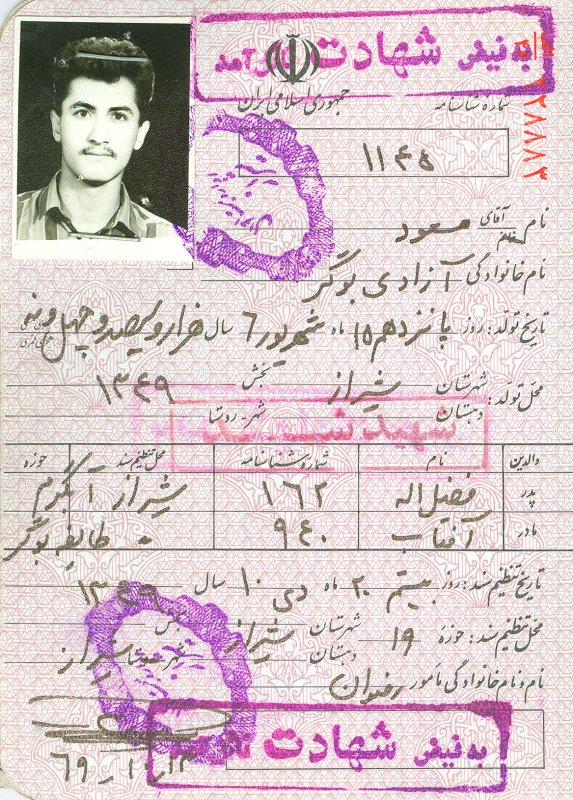 به فیض شهادت نائل آمد
جمهوری اسلامی ایران
شماره شناسنامه
۲۸۸۸۸۲
۱۱۴۵
نام آقای خانم مسعود
نام خانوادگی آزادی بوگر
تاریخ تولد: روز پانزدهم ۱۵ ماه شهریور ۶ سال هزار و سیصد و چهل و نه
محل تولد: شهرستان شیراز بخش ۱۳۴۹
دهستان شهر - روستا
شهید شد
والدین نام شماره شناسنامه محل تنظیم سند حوزه
پدر فضل اله ۱۶۲ شیراز
مادر آفتاب ۹۴۰ طایفه بوگر
تاریخ تنظیم سند: روز بیستم ۲۰ ماه دی ۱۰ سال ۱۳۴۹
محل تنظیم سند: حوزه ۱۹ شهرستان شیراز بخش
دهستان شهر - روستا شیراز
نام و نام خانوادگی مأمور رضوان
به فیض شهادت